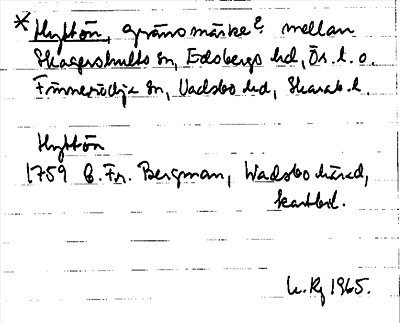 * Hyttön, gränsmärke? mellan
Skagershults sn, Edsbergs hd, Ör. l. o.
Finnerödja sn, Vadsbo hd, Skarab. l.
Hyttön
1759 C. Fr. Bergman, Wadsbo härad,
kartbl.
1965.